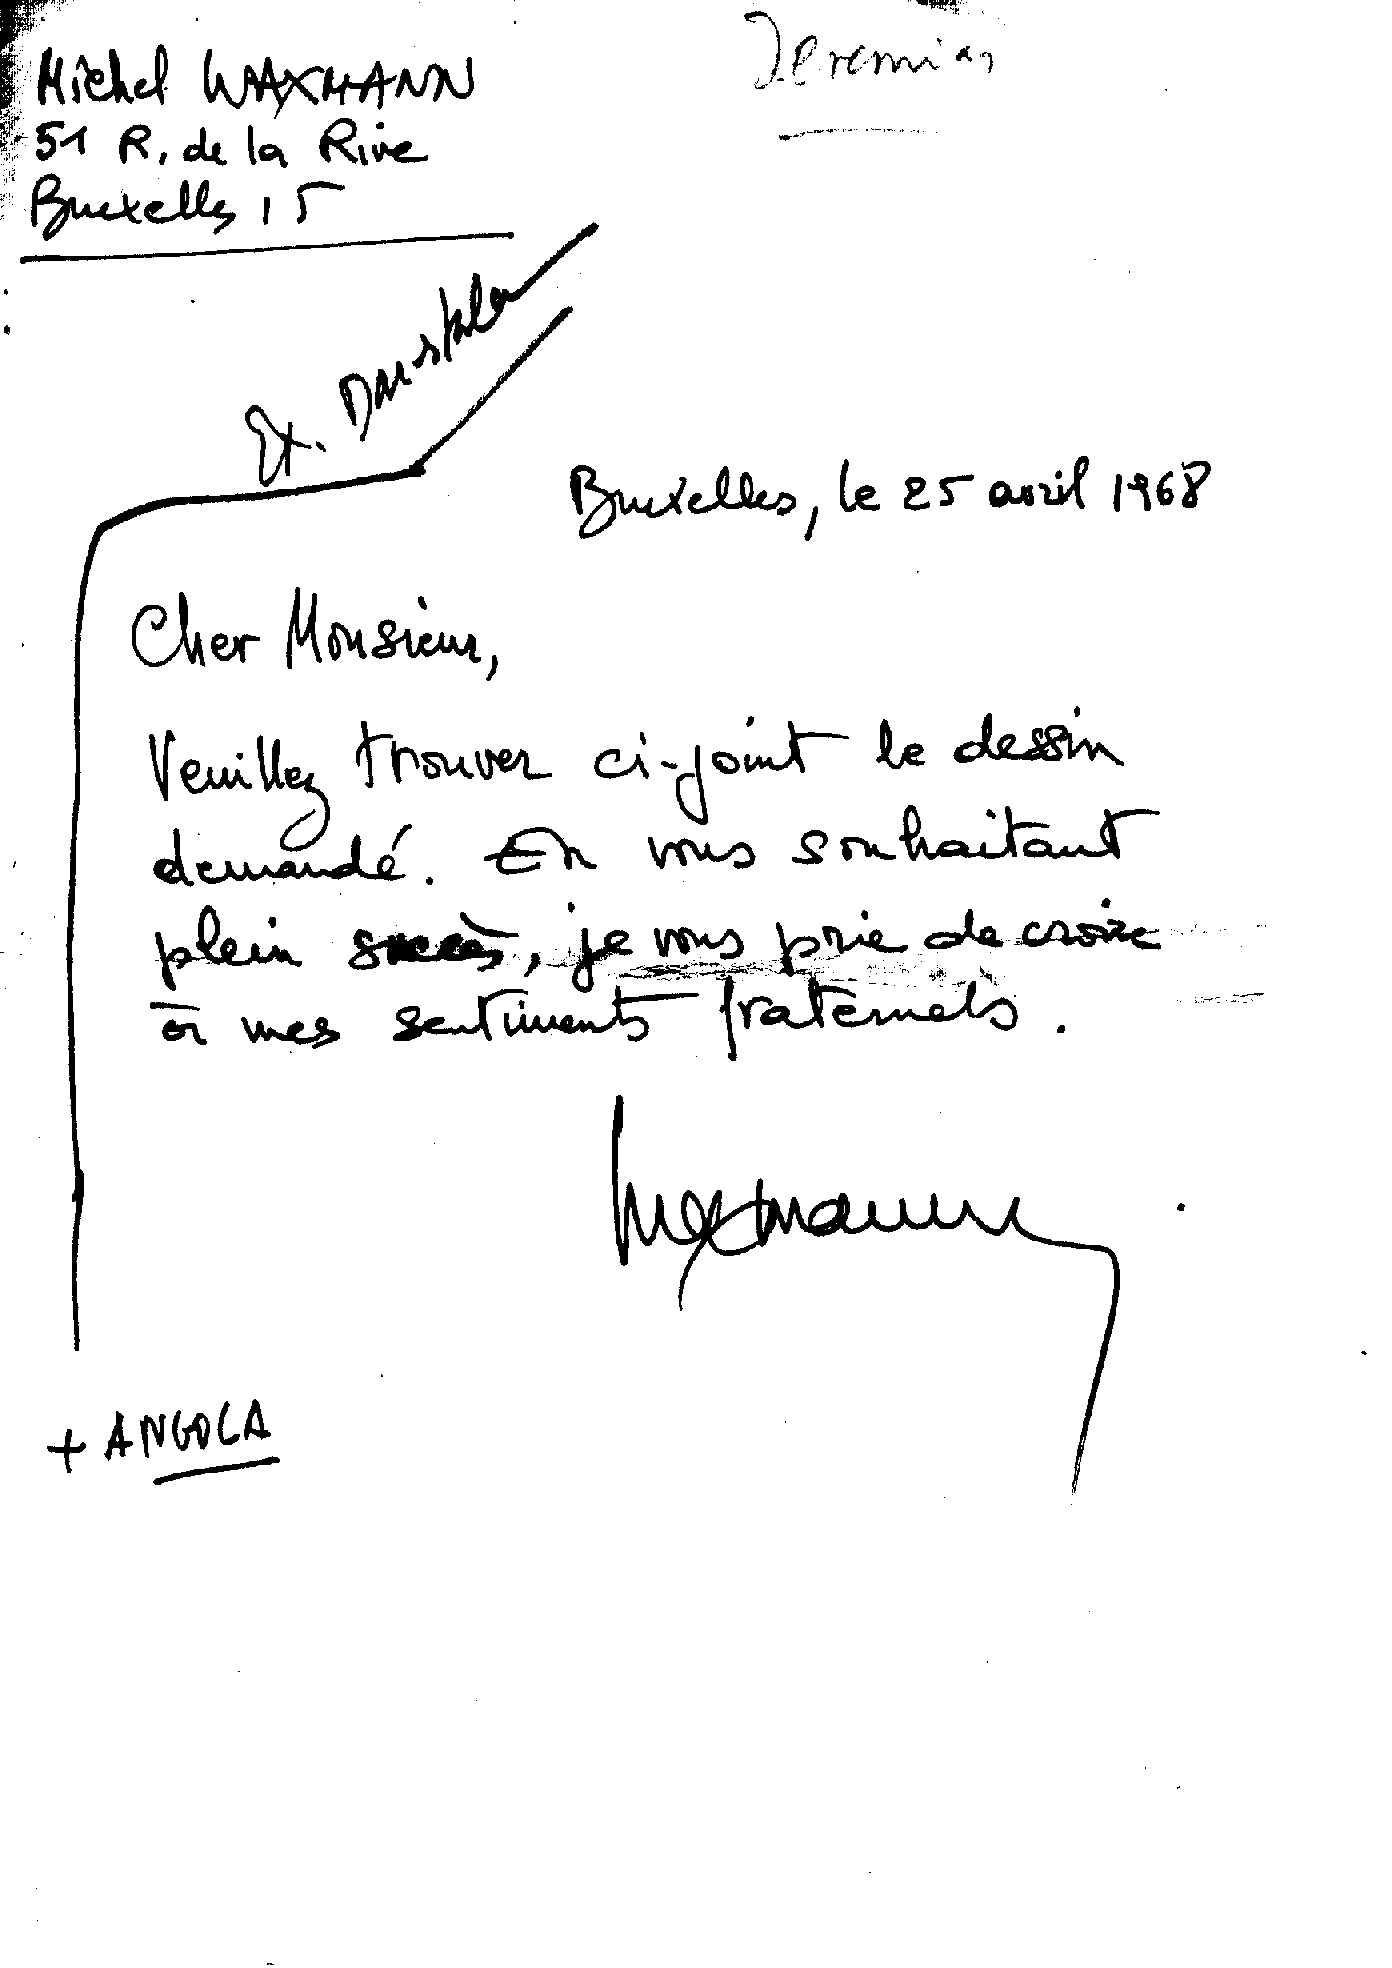 Michel WAXMANN
Jeremias
51 R. de la Rive
Bruxelles 15
Ex.
Bruxelles, le 25 avril 1968
Cher Monsieur,
Veuillez trouver ci-joint le dessin
demandé. En vous souhaitant
plein succès, je vous prie de croire
à mes sentiments fraternels.
Waxmann
+ ANGOLA